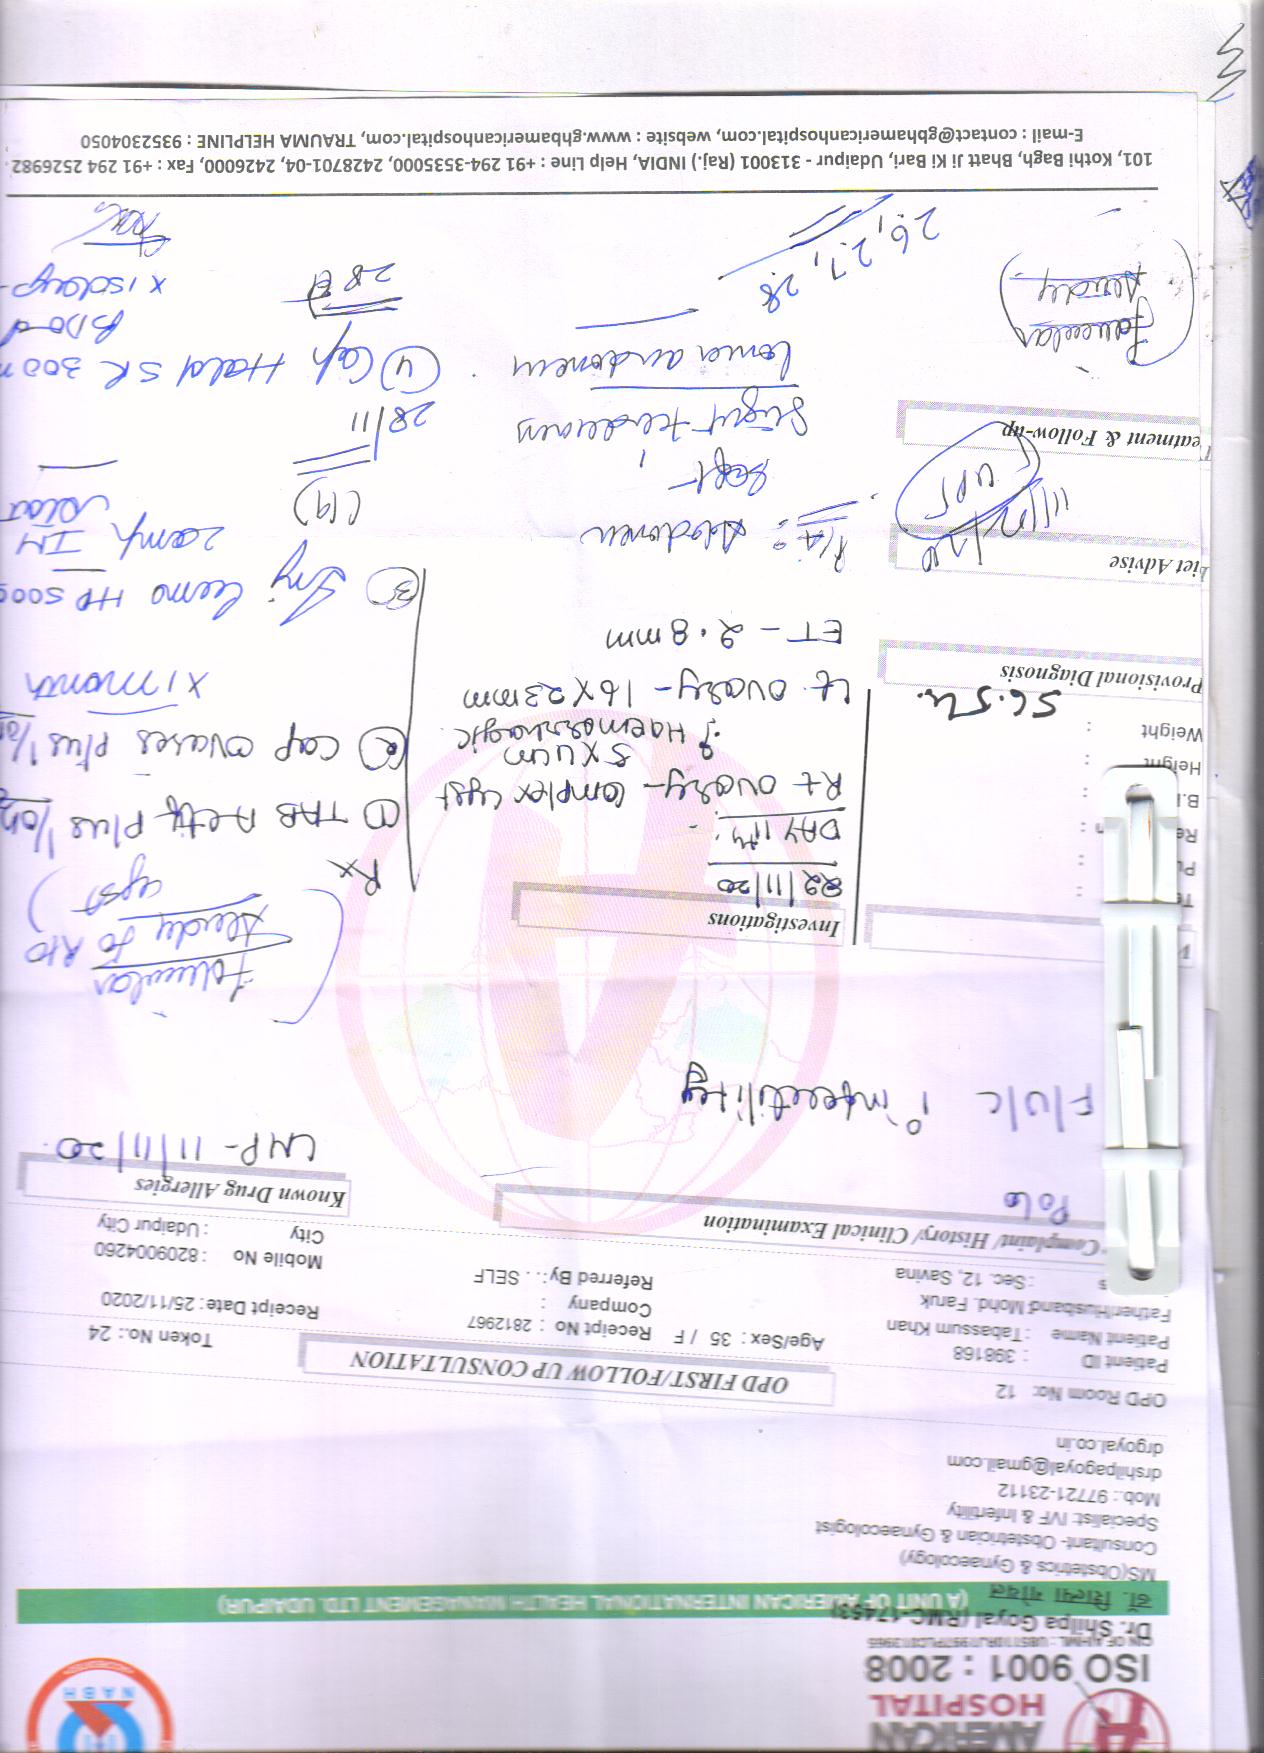 AMERICAN
HOSPITAL
ISO 9001 : 2008
NABH
Dr. Shilpa Goyal (RMC-17453)
डॉ. शिल्पा गोयल
(A UNIT OF AMERICAN INTERNATIONAL HEALTH MANAGEMENT LTD. UDAIPUR)
MS(Obstetrics & Gynaecology)
Consultant- Obstetrician & Gynaecologist
Specialist: IVF & Infertility
Mob.: 97721-23112
drshilpagoyal@gmail.com
drgoyal.co.in
OPD Room No: 12
OPD FIRST/FOLLOW UP CONSULTATION
Token No.: 24
Patient ID : 398168
Patient Name : Tabassum Khan
Age/Sex : 35 / F
Receipt No : 2812967
Receipt Date : 25/11/2020
Father/Husband: Mohd. Faruk
Company :
: Sec. 12, Savina
Referred By: . . SELF
Mobile No : 8209004260
City : Udaipur City
Complaint/ History/ Clinical Examination
Known Drug Allergies
P0L0
LMP- 11/11/20
F/U/C 1° infertility
Follicular
study to R/O
cyst)
Investigations
22/11/20
DAY 11th:
Rt ovary- Complex cyst
5x4cm
? Haemorrhagic
Lt. ovary- 16 X 23mm
ET - 2.8mm
Height :
Weight :
56.5
Provisional Diagnosis
P/A: Abdomen
soft
Slight tenderness
lower abdomen
Diet Advise
UPT
Treatment & Follow-up
(Follicular
study)
26, 27, 28
Rx
① TAB Actif Plus 1/OD
② Cap Ovares Plus 1/OD
X 1 month
③ Inj
HP 5000
2 amp IM
stat
(19)
28/11
④ Cap Hald SR 300 m
BDD
X 15days
101, Kothi Bagh, Bhatt Ji Ki Bari, Udaipur - 313001 (Raj.) INDIA, Help Line : +91 294-3535000, 2428701-04, 2426000, Fax : +91 294 2526982
E-mail : contact@gbhamericanhospital.com, website : www.gbhamericanhospital.com, TRAUMA HELPLINE : 9352304050